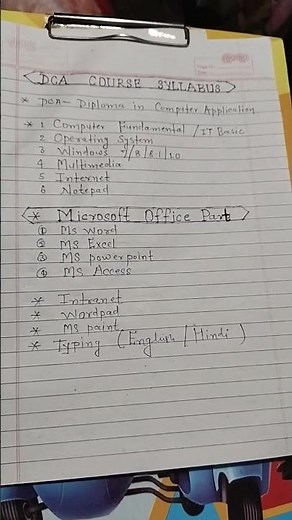 DCA COURSE SYLLABUS
* DCA - Diploma in Computer Application
* 1 Computer Fundamental / IT Basic
2 Operating System
3 Windows 7/8/8.1/10
4 Multimedia
5 Internet
6 Notepad
* Microsoft Office Part
① MS Word
② MS Excel
③ MS powerpoint
④ MS Access
* Intranet
* Wordpad
* MS paint
* Typing (English / Hindi)